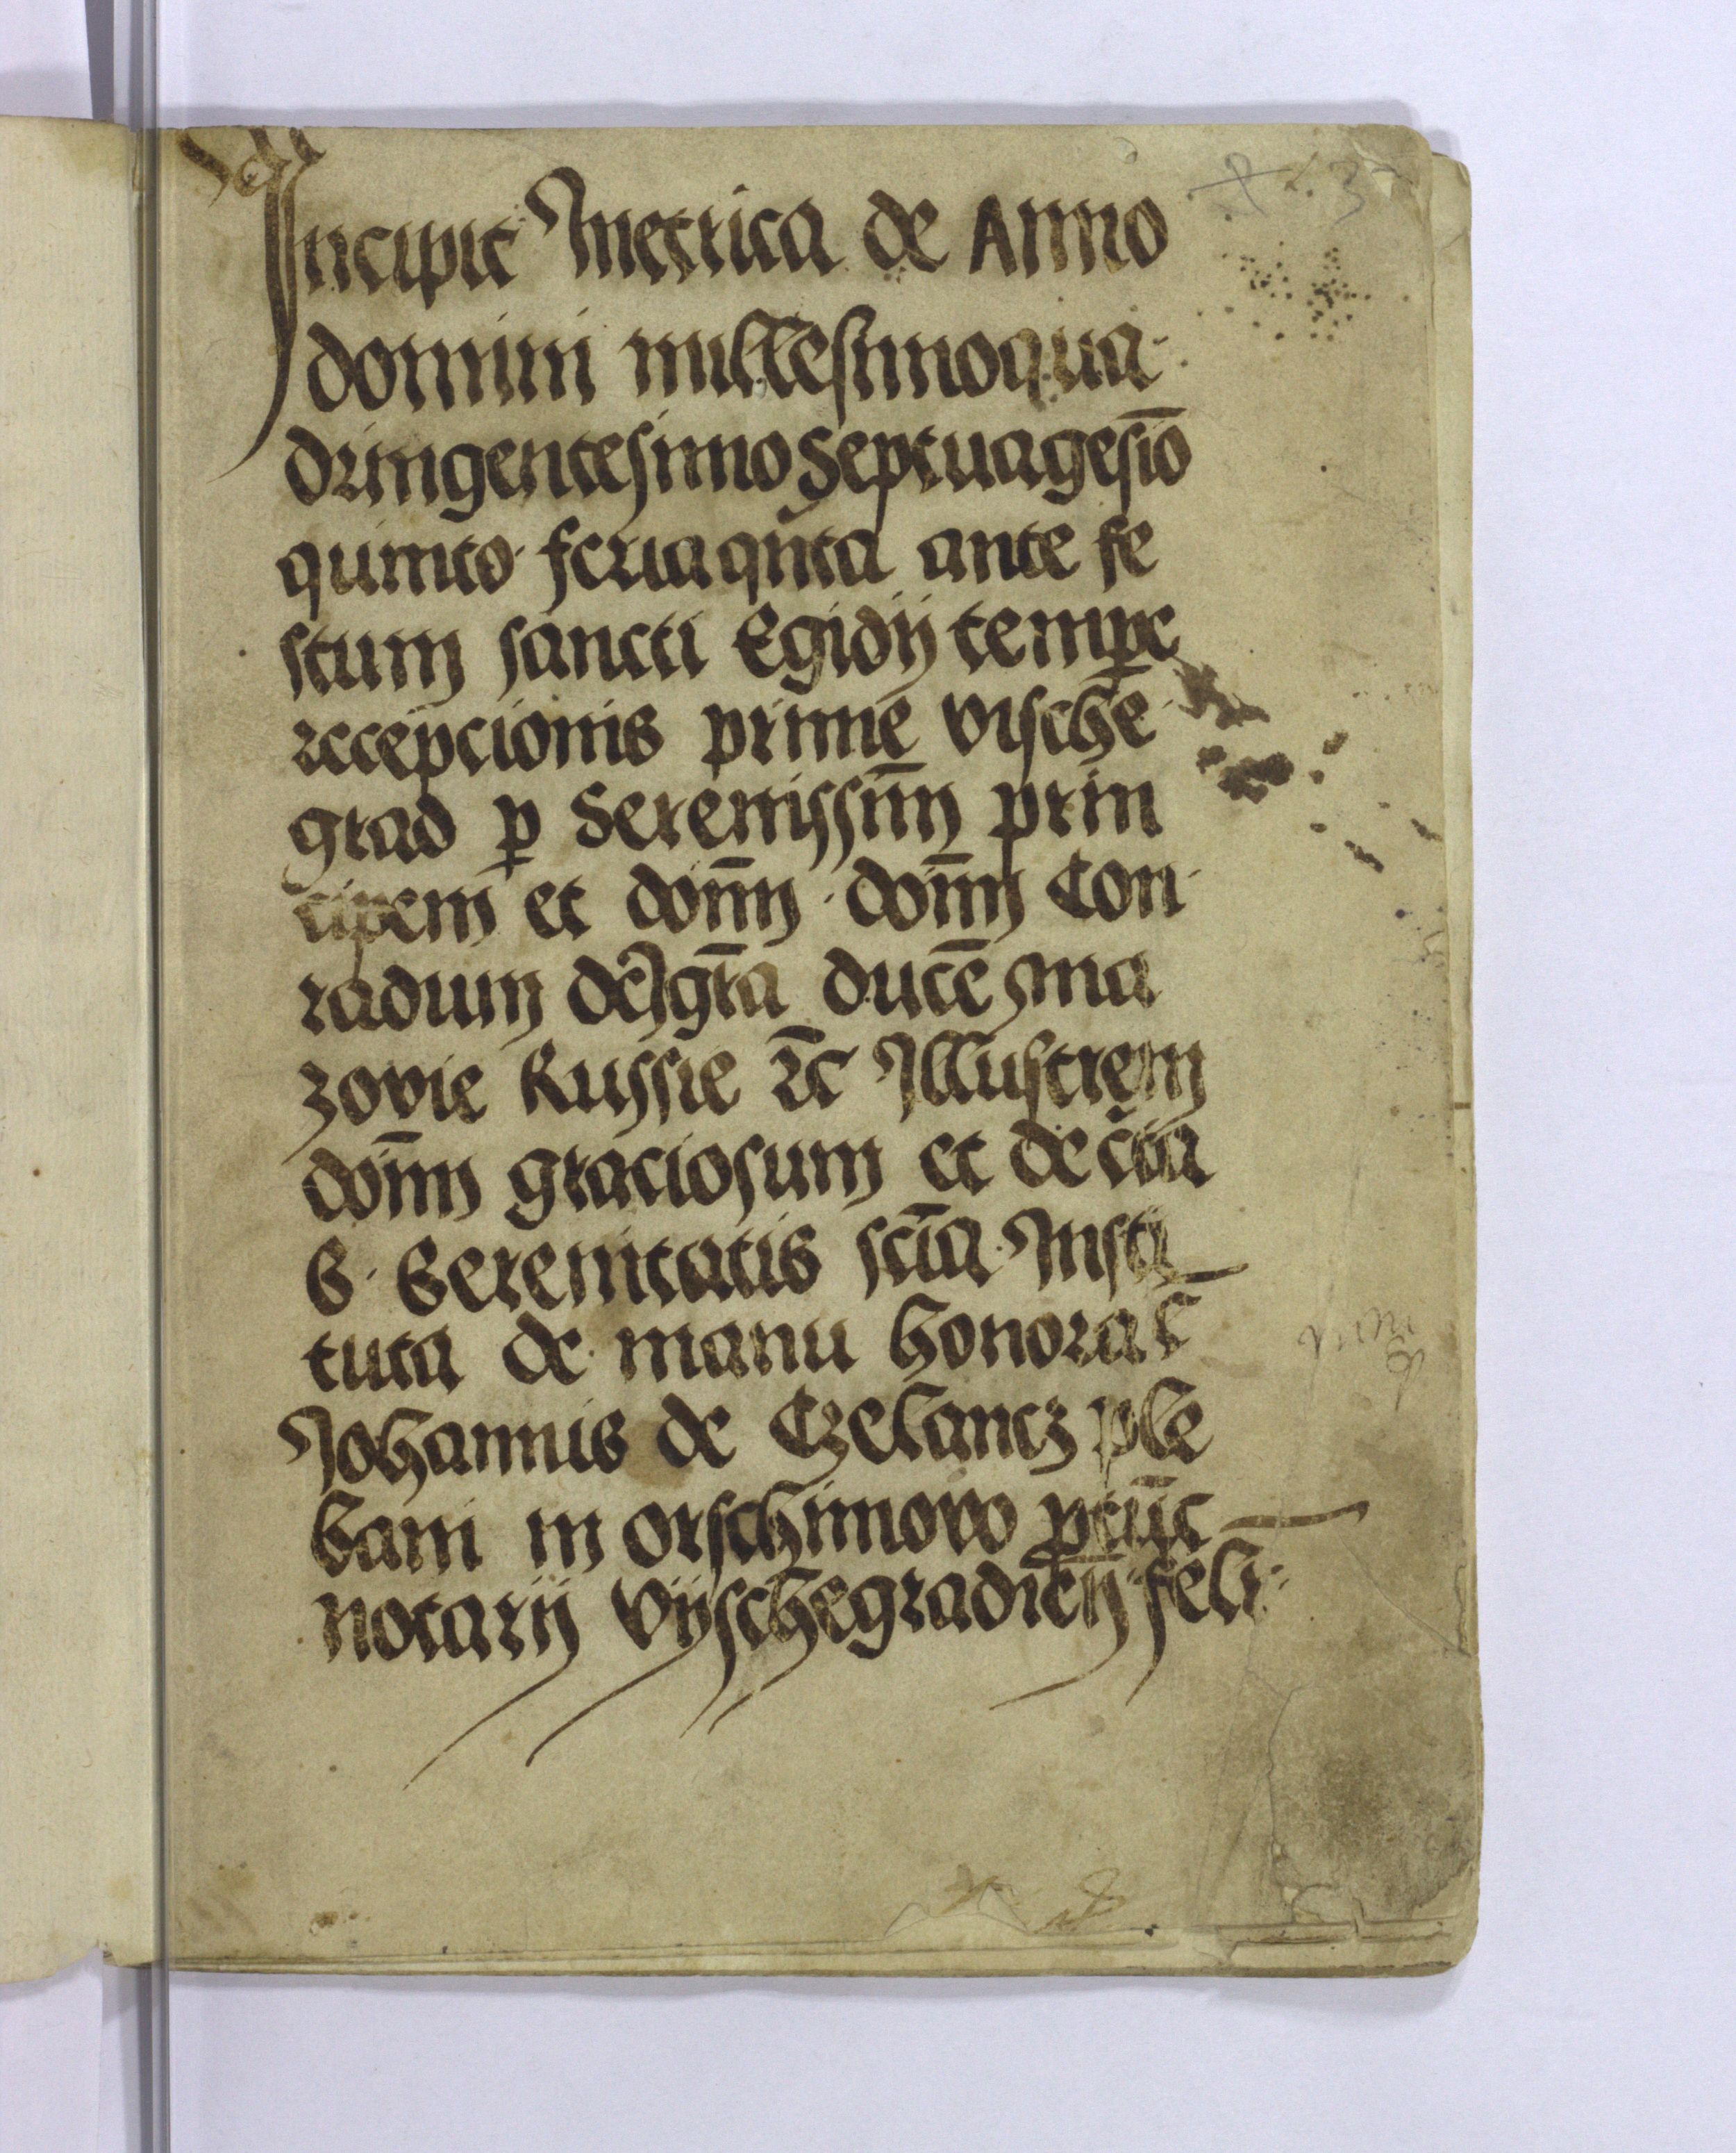 Incipit Metrica de Anno
domini millesimoqua
dringentesimo Septuagesiō
quinto feria qnta ante fe
stum sancti Egidij tempe
recepcionis prime vische
grad p Serenissim̄ prin
cipem et dom̄ dom̄ Con
radum dei grā ducē ma
zovie Russie ꝛc̄ Illustrem
dom̄ graciosum et de cīa
S Serenitatis scīa Insti
tuta de manu honorat
Johannis de Czekancz ple
bani in orschimowo ptūc
notarij vijschegradien̄ feli